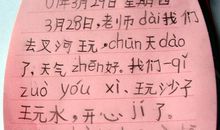 01年3月29日 星期四
3月28日，老师dài我们
去叉河王元，chūn天dào
了，天气zhēn好。我们一qǐ
zuò yóu xì、王元沙子
王元水，开心jí了。